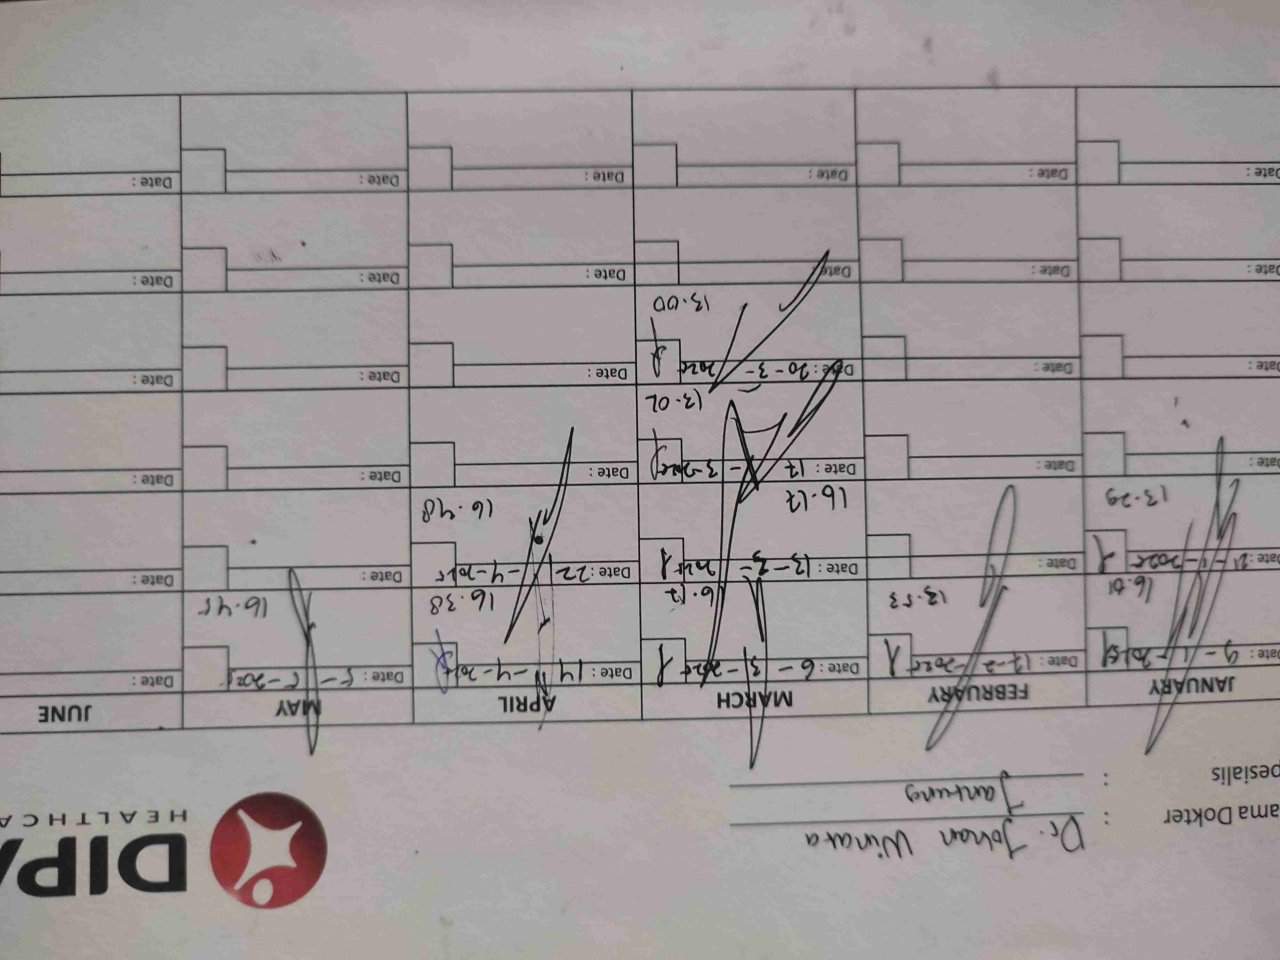 DIPA
HEALTHCA
ama Dokter : Dr. Johan Winata
pesialis : Jantung
JANUARY FEBRUARY MARCH APRIL MAY JUNE
Date: 9-1-2025 Date: 17-2-2025 Date: 6-3-2025 Date: 14-4-2025 Date: 5-5-2025 Date:
16.01 13.53 16.17 16.38 16.45
Date: 21-1-2025 Date: Date: 13-3-2025 Date: 22-4-2025 Date: Date:
13.29 16.17 16.48
Date: Date: Date: 17-3-2025 Date: Date: Date:
13.02
Date: Date: Date: 20-3-2025 Date: Date: Date:
13.00
Date: Date: Date: Date: Date: Date:
Date: Date: Date: Date: Date: Date: